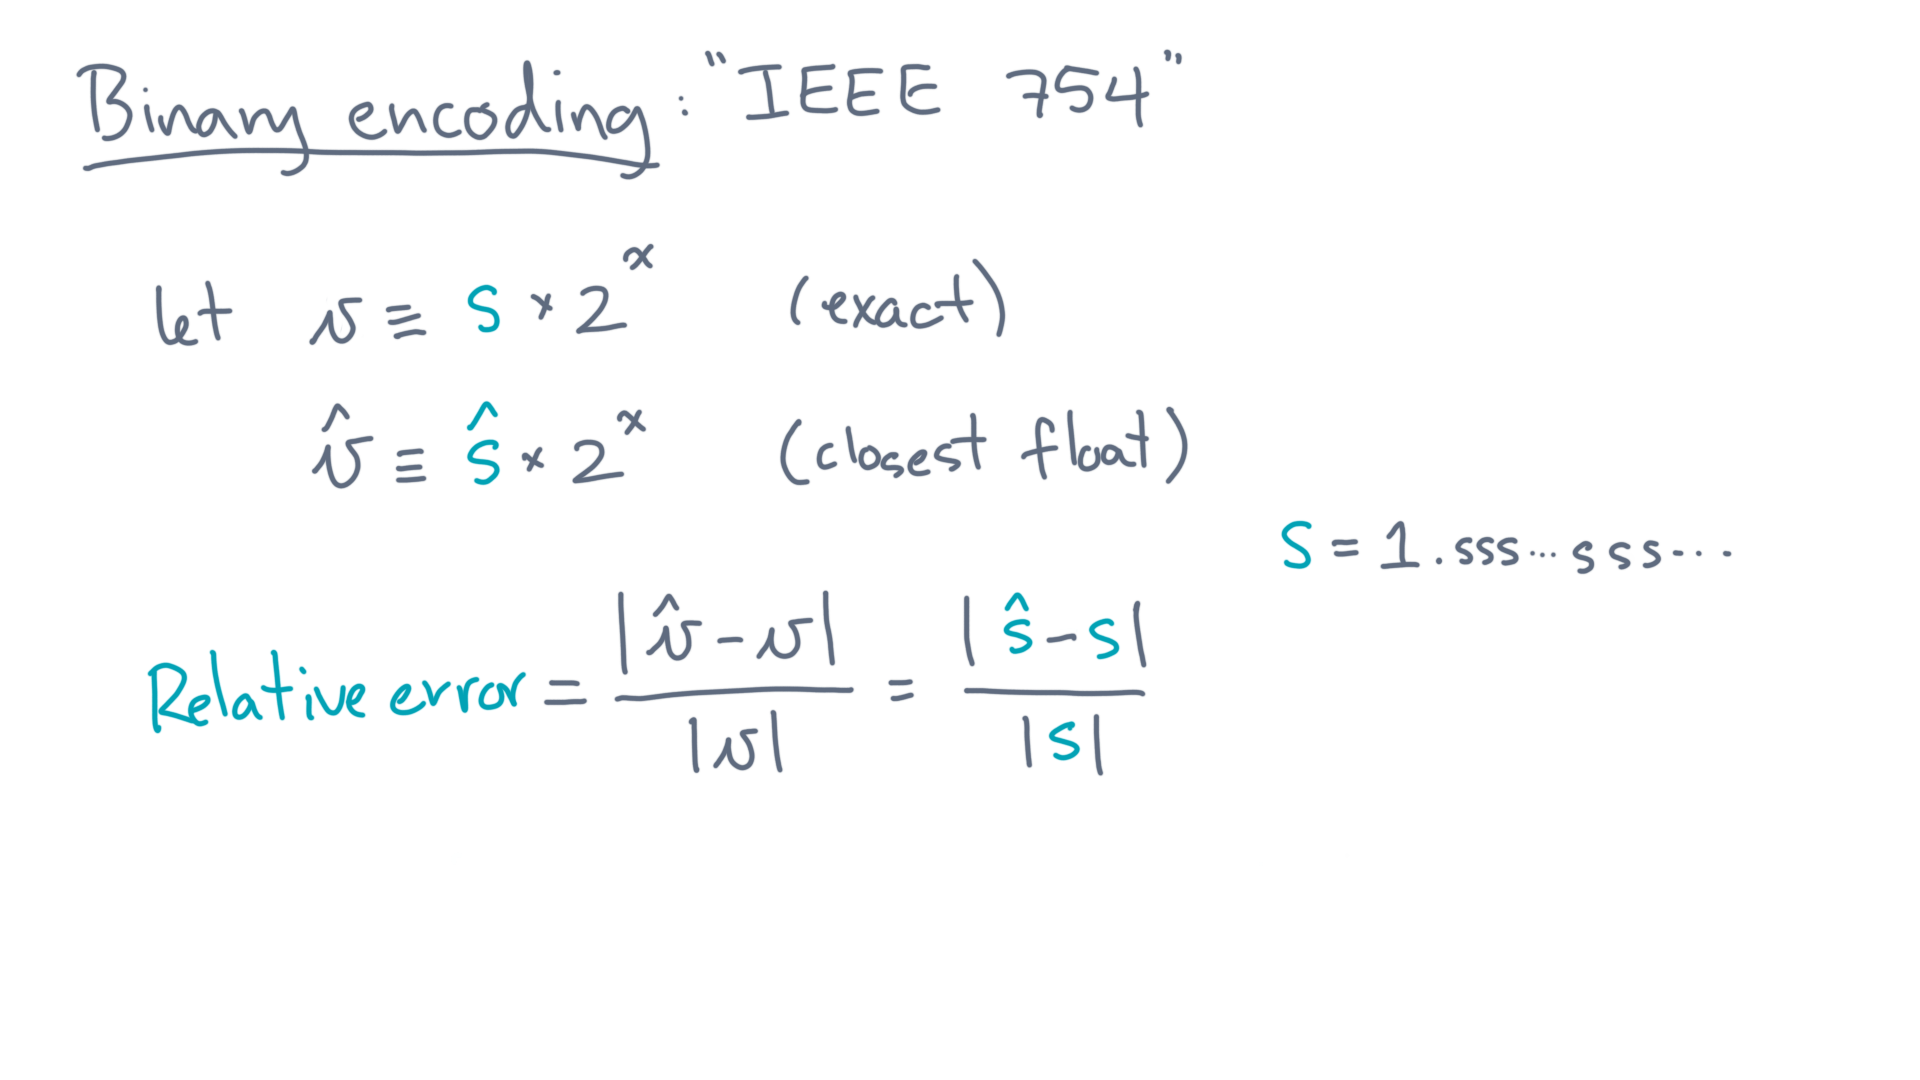 Binary encoding: "IEEE 754"
let v ≡ s × 2^x (exact)
v̂ ≡ ŝ × 2^x (closest float)
s = 1.sss...sss...
Relative error = |v̂ - v| / |v| = |ŝ - s| / |s|